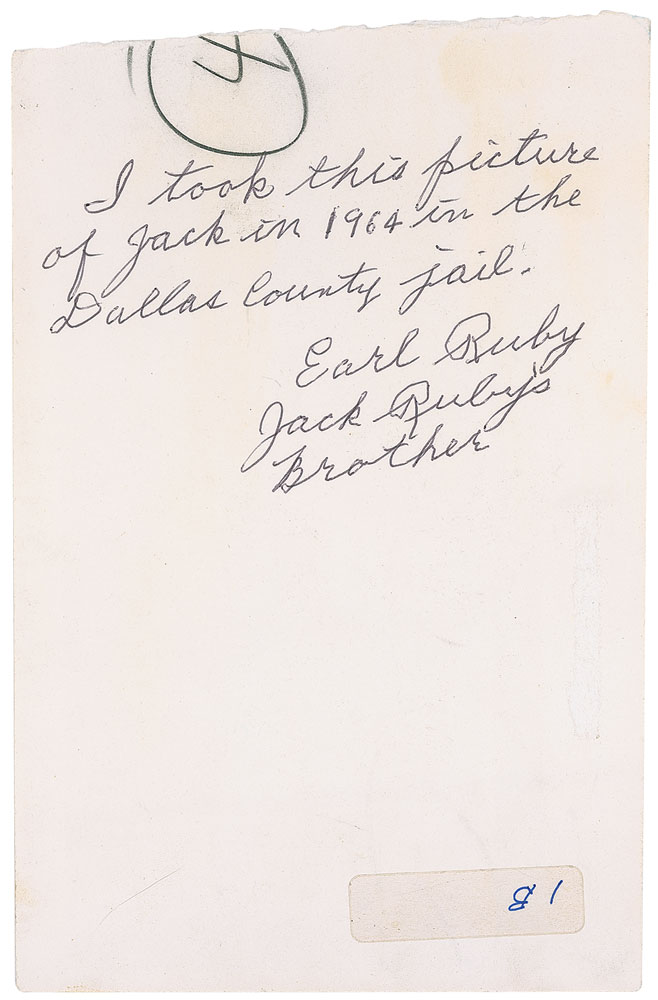 4
I took this picture
of Jack in 1964 in the
Dallas County jail.
Earl Ruby
Jack Ruby's
Brother